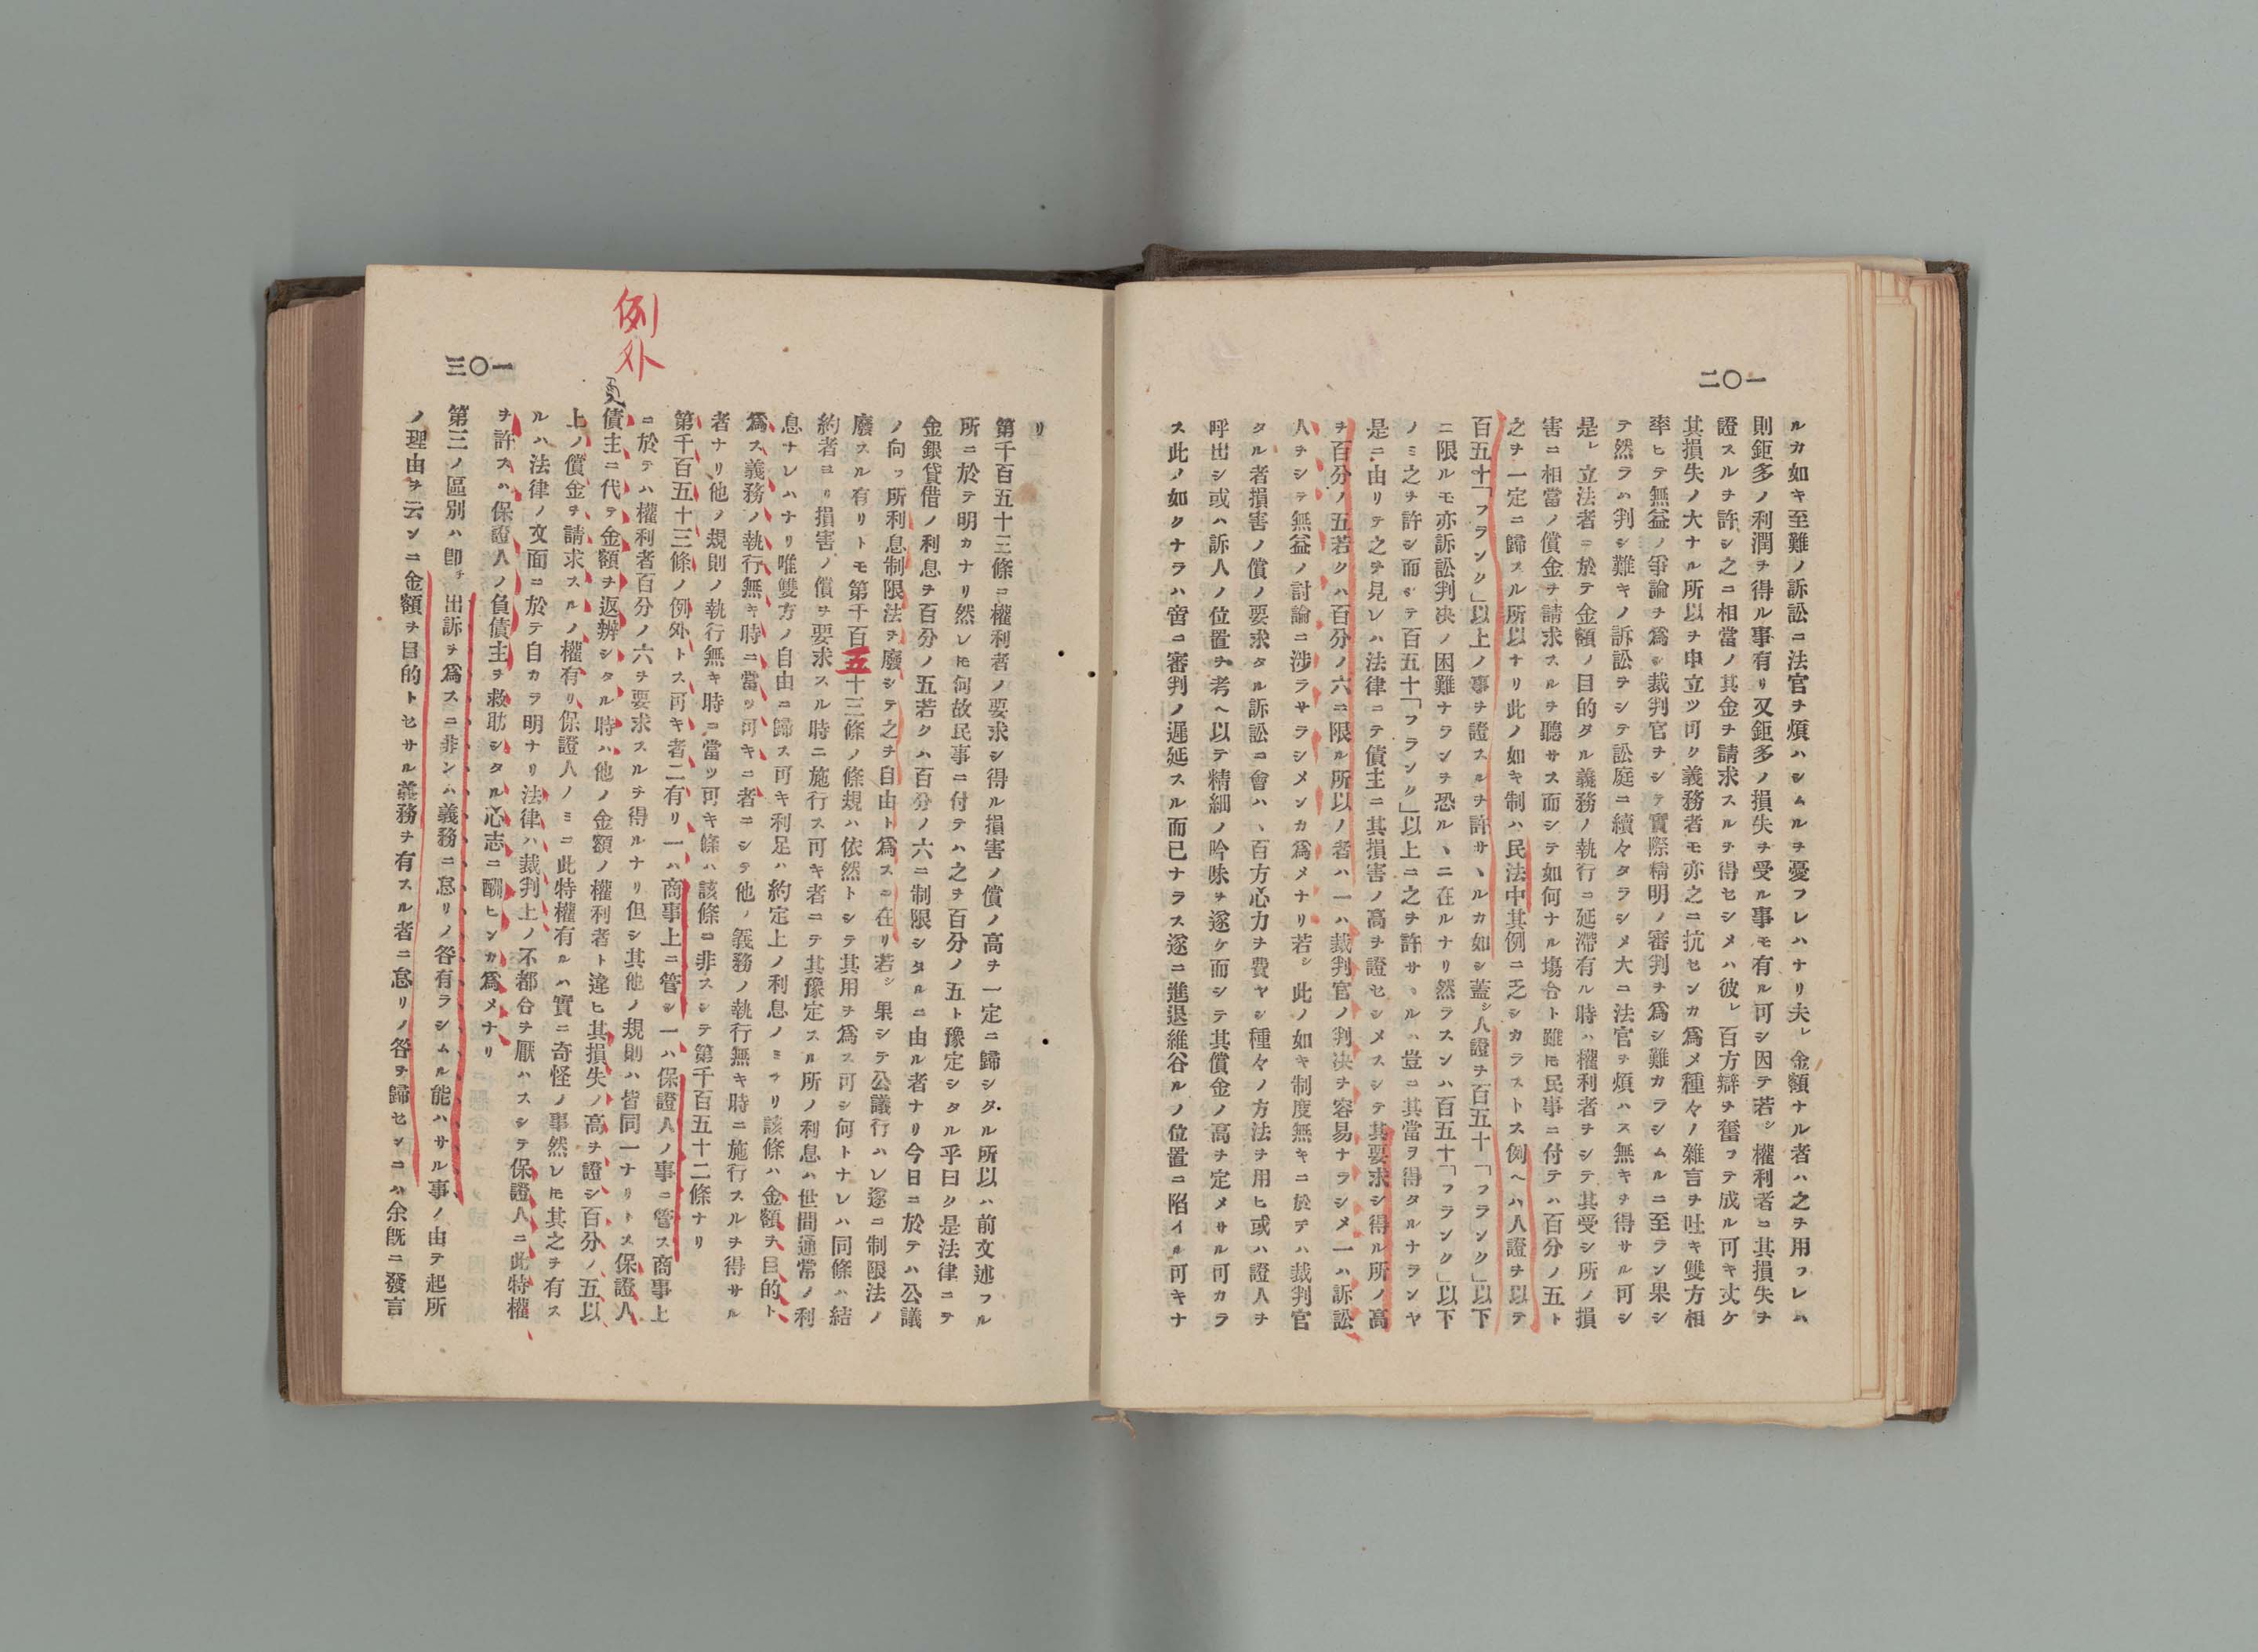 一〇二
ルカ如キ至難ノ訴訟ニ法官ヲ煩ハシムルヲ憂フレハナリ夫レ金額ナル者ハ之ヲ用フレハ
則鉅多ノ利潤ヲ得ル事有リ又鉅多ノ損失ヲ受ル事モ有ル可シ因テ若シ權利者ニ其損失ヲ
證スルヲ許シ之ニ相當ノ其金ヲ請求スルヲ得セシメハ彼レ百方辯ヲ奮フテ成ル可キ丈ケ
其損失ノ大ナル所以ヲ申立ツ可ク義務者モ亦之ニ抗センカ爲メ種々ノ雜言ヲ吐キ雙方相
率ヒテ無益ノ爭論ヲ爲シ裁判官ヲシテ實際精明ノ審判ヲ爲シ難カラシムルニ至ラン果シ
テ然ラハ判シ難キノ訴訟ヲシテ訟庭ニ續々タラシメ大ニ法官ヲ煩ハス無キヲ得サル可シ
是レ立法者ニ於テ金額ノ目的タル義務ノ執行ニ延滯有ル時ハ權利者ヲシテ其受シ所ノ損
害ニ相當ノ償金ヲ請求スルヲ聽サス而シテ如何ナル塲合ト雖𪜈民事ニ付テハ百分ノ五ト
之ヲ一定ニ歸スル所以ナリ此ノ如キ制ハ民法中其例ニ乏シカラストス例ヘハ人證ヲ以テ
百五十「フランク」以上ノ事ヲ證スルヲ許サヽルカ如シ蓋シ人證ヲ百五十「フランク」以下
ニ限ルモ亦訴訟判决ノ困難ナランヲ恐ルヽニ在ルナリ然ラスンハ百五十「フランク」以下
ノミ之ヲ許シ而シテ百五十「フランク」以上ニ之ヲ許サヽルハ豈ニ其當ヲ得タルナランヤ
是ニ由リテ之ヲ見レハ法律ニテ債主ニ其損害ノ高ヲ證セシメスシテ其要求シ得ル所ノ高
ヲ百分ノ五若クハ百分ノ六ニ限ル所以ノ者ハ一ハ裁判官ノ判决ヲ容易ナラシメ一ハ訴訟
人ヲシテ無益ノ討論ニ涉ラサラシメンカ爲メナリ若シ此ノ如キ制度無キニ於テハ裁判官
タル者損害ノ償ノ要求タル訴訟ニ會ハヽ百方心力ヲ費ヤシ種々ノ方法ヲ用ヒ或ハ證人ヲ
呼出シ或ハ訴人ノ位置ヲ考ヘ以テ精細ノ吟味ヲ遂ケ而シテ其償金ノ高ヲ定メサル可カラ
ス此ノ如クナラハ啻ニ審判ノ遲延スル而已ナラス遂ニ進退維谷ルノ位置ニ陷イル可キナ
一〇三
例外
リ
第千百五十三條ニ權利者ノ要求シ得ル損害ノ償ノ高ヲ一定ニ歸シタル所以ハ前文述フル
所ニ於テ明カナリ然レ𪜈何故民事ニ付テハ之ヲ百分ノ五ト豫定シタル乎曰ク是法律ニテ
金銀貸借ノ利息ヲ百分ノ五若クハ百分ノ六ニ制限シタルニ由ル者ナリ今日ニ於テハ公議
ノ向フ所利息制限法ヲ廢シテ之ヲ自由ト爲スニ在リ若シ果シテ公議行ハレ遂ニ制限法ノ
廢スル有リトモ第千百五十三條ノ條規ハ依然トシテ其用ヲ爲ス可シ何トナレハ同條ハ結
約者ヨリ損害ノ償ヲ要求スル時ニ施行ス可キ者ニテ其豫定スル所ノ利息ハ世間通常ノ利
息ナレハナリ唯雙方ノ自由ニ歸ス可キ利足ハ約定上ノ利息ノミナリ該條ハ金額ヲ目的ト
爲ス義務ノ執行無キ時ニ當ツ可キニ者ニシテ他ノ義務ノ執行無キ時ニ施行スルヲ得サル
者ナリ他ノ規則ノ執行無キ時ニ當ツ可キ條ハ該條ニ非スシテ第千百五十二條ナリ
第千百五十三條ノ例外トス可キ者二有リ一ハ商事上ニ管シ一ハ保證人ノ事ニ管ス商事上
ニ於テハ權利者百分ノ六ヲ要求スルヲ得ルナリ但シ其他ノ規則ハ皆同一ナリトス保證人
債主ニ代テ金額ヲ返辨シタル時ハ他ノ金額ノ權利者ト違ヒ其損失ノ高ヲ證シ百分ノ五以
上ノ償金ヲ請求スルノ權有リ保證人ノミニ此特權有ルハ實ニ奇怪ノ事然レ𪜈其之ヲ有ス
ルハ法律ノ文面ニ於テ自カラ明ナリ法律ハ裁判上ノ不都合ヲ厭ハスシテ保證人ニ此特權
ヲ許スハ保證人ノ負債主ヲ救助シタル心志ニ酬ヒンカ爲メナリ
第三ノ區別ハ卽チ出訴ヲ爲スニ非ンハ義務ニ怠リノ咎有ラシムル能ハサル事ノ由テ起所
ノ理由ヲ云ンニ金額ヲ目的トセサル義務ヲ有スル者ニ怠リノ咎ヲ歸センコハ余旣ニ發言